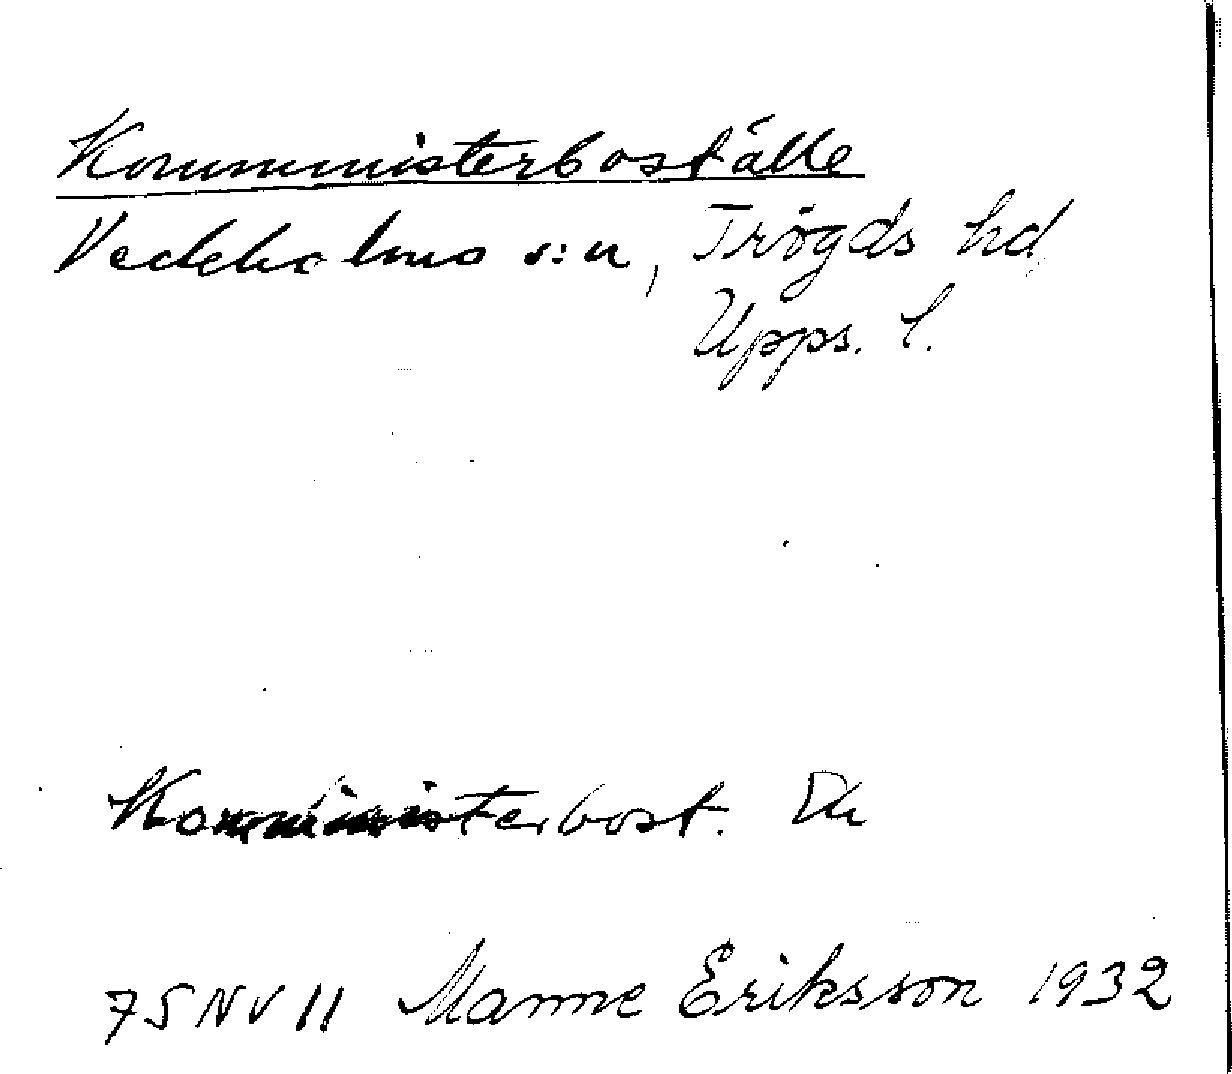 Kommministerboställe
Veckholms s:n, Trögds hd,
Upps. l.
Komministerbost. Dk
75 NV 11 Manne Eriksson 1932